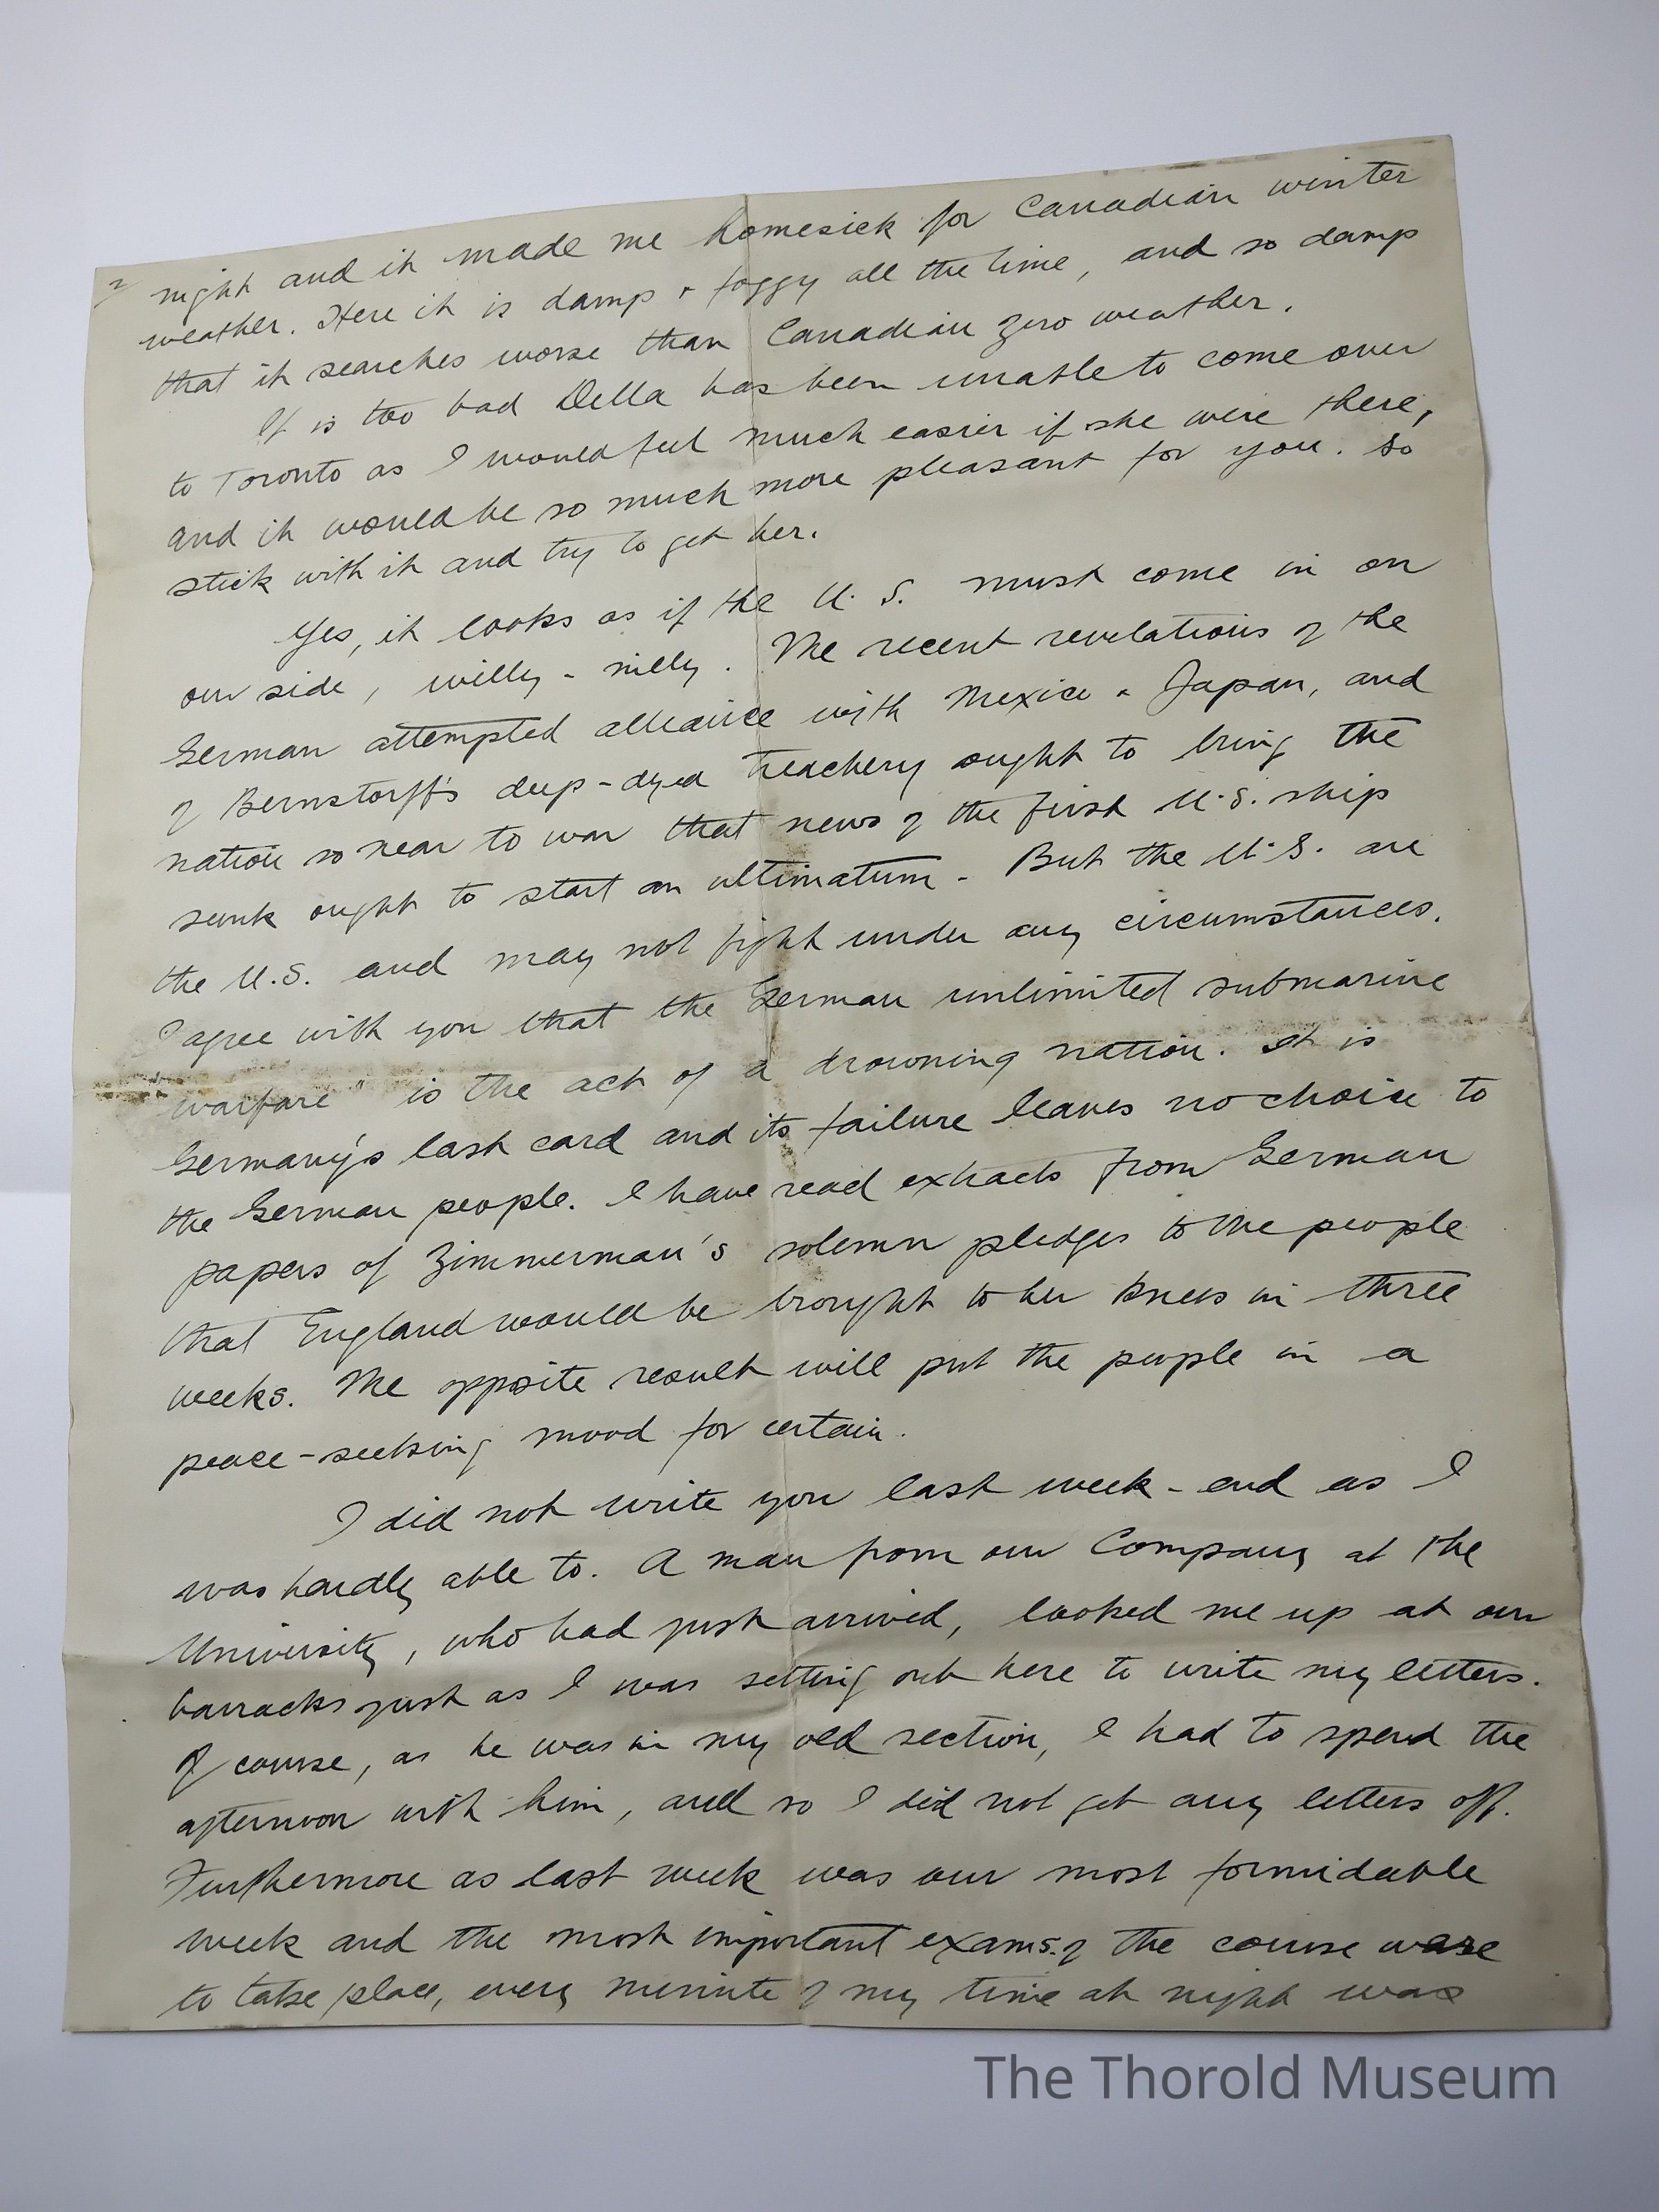 2
night and it made me homesick for Canadian winter
weather. Here it is damp & foggy all the time, and so damp
that it searches worse than Canadian zero weather.
It is too bad Della has been unable to come over
to Toronto as I would feel much easier if she were there,
and it would be so much more pleasant for you. So
stick with it and try to get her.
Yes, it looks as if the U.S. must come in on
our side, willy-nilly. The recent revelations of the
German attempted alliance with Mexico & Japan, and
of Bernstorff's deep-dyed treachery ought to bring the
nation so near to war that news of the first U.S. ship
sunk ought to start an ultimatum - But the U.S. are
the U.S. and may not fight under any circumstances.
I agree with you that the German unlimited submarine
warfare" is the act of a drowning nation. It is
Germany's last card and its failure leaves no choice to
the German people. I have read extracts from German
papers of Zimmerman's solemn pledges to the people
that England would be brought to her knees in three
weeks. The opposite result will put the people in a
peace-seeking mood for certain.
I did not write you last week-end as I
was hardly able to. A man from our Company at the
University, who had just arrived, looked me up at our
barracks just as I was setting out here to write my letters.
Of course, as he was in my old section, I had to spend the
afternoon with him, and so I did not get any letters off.
Furthermore as last week was our most formidable
week and the most important exams. of the course were
to take place, every minute of my time at night was
The Thorold Museum